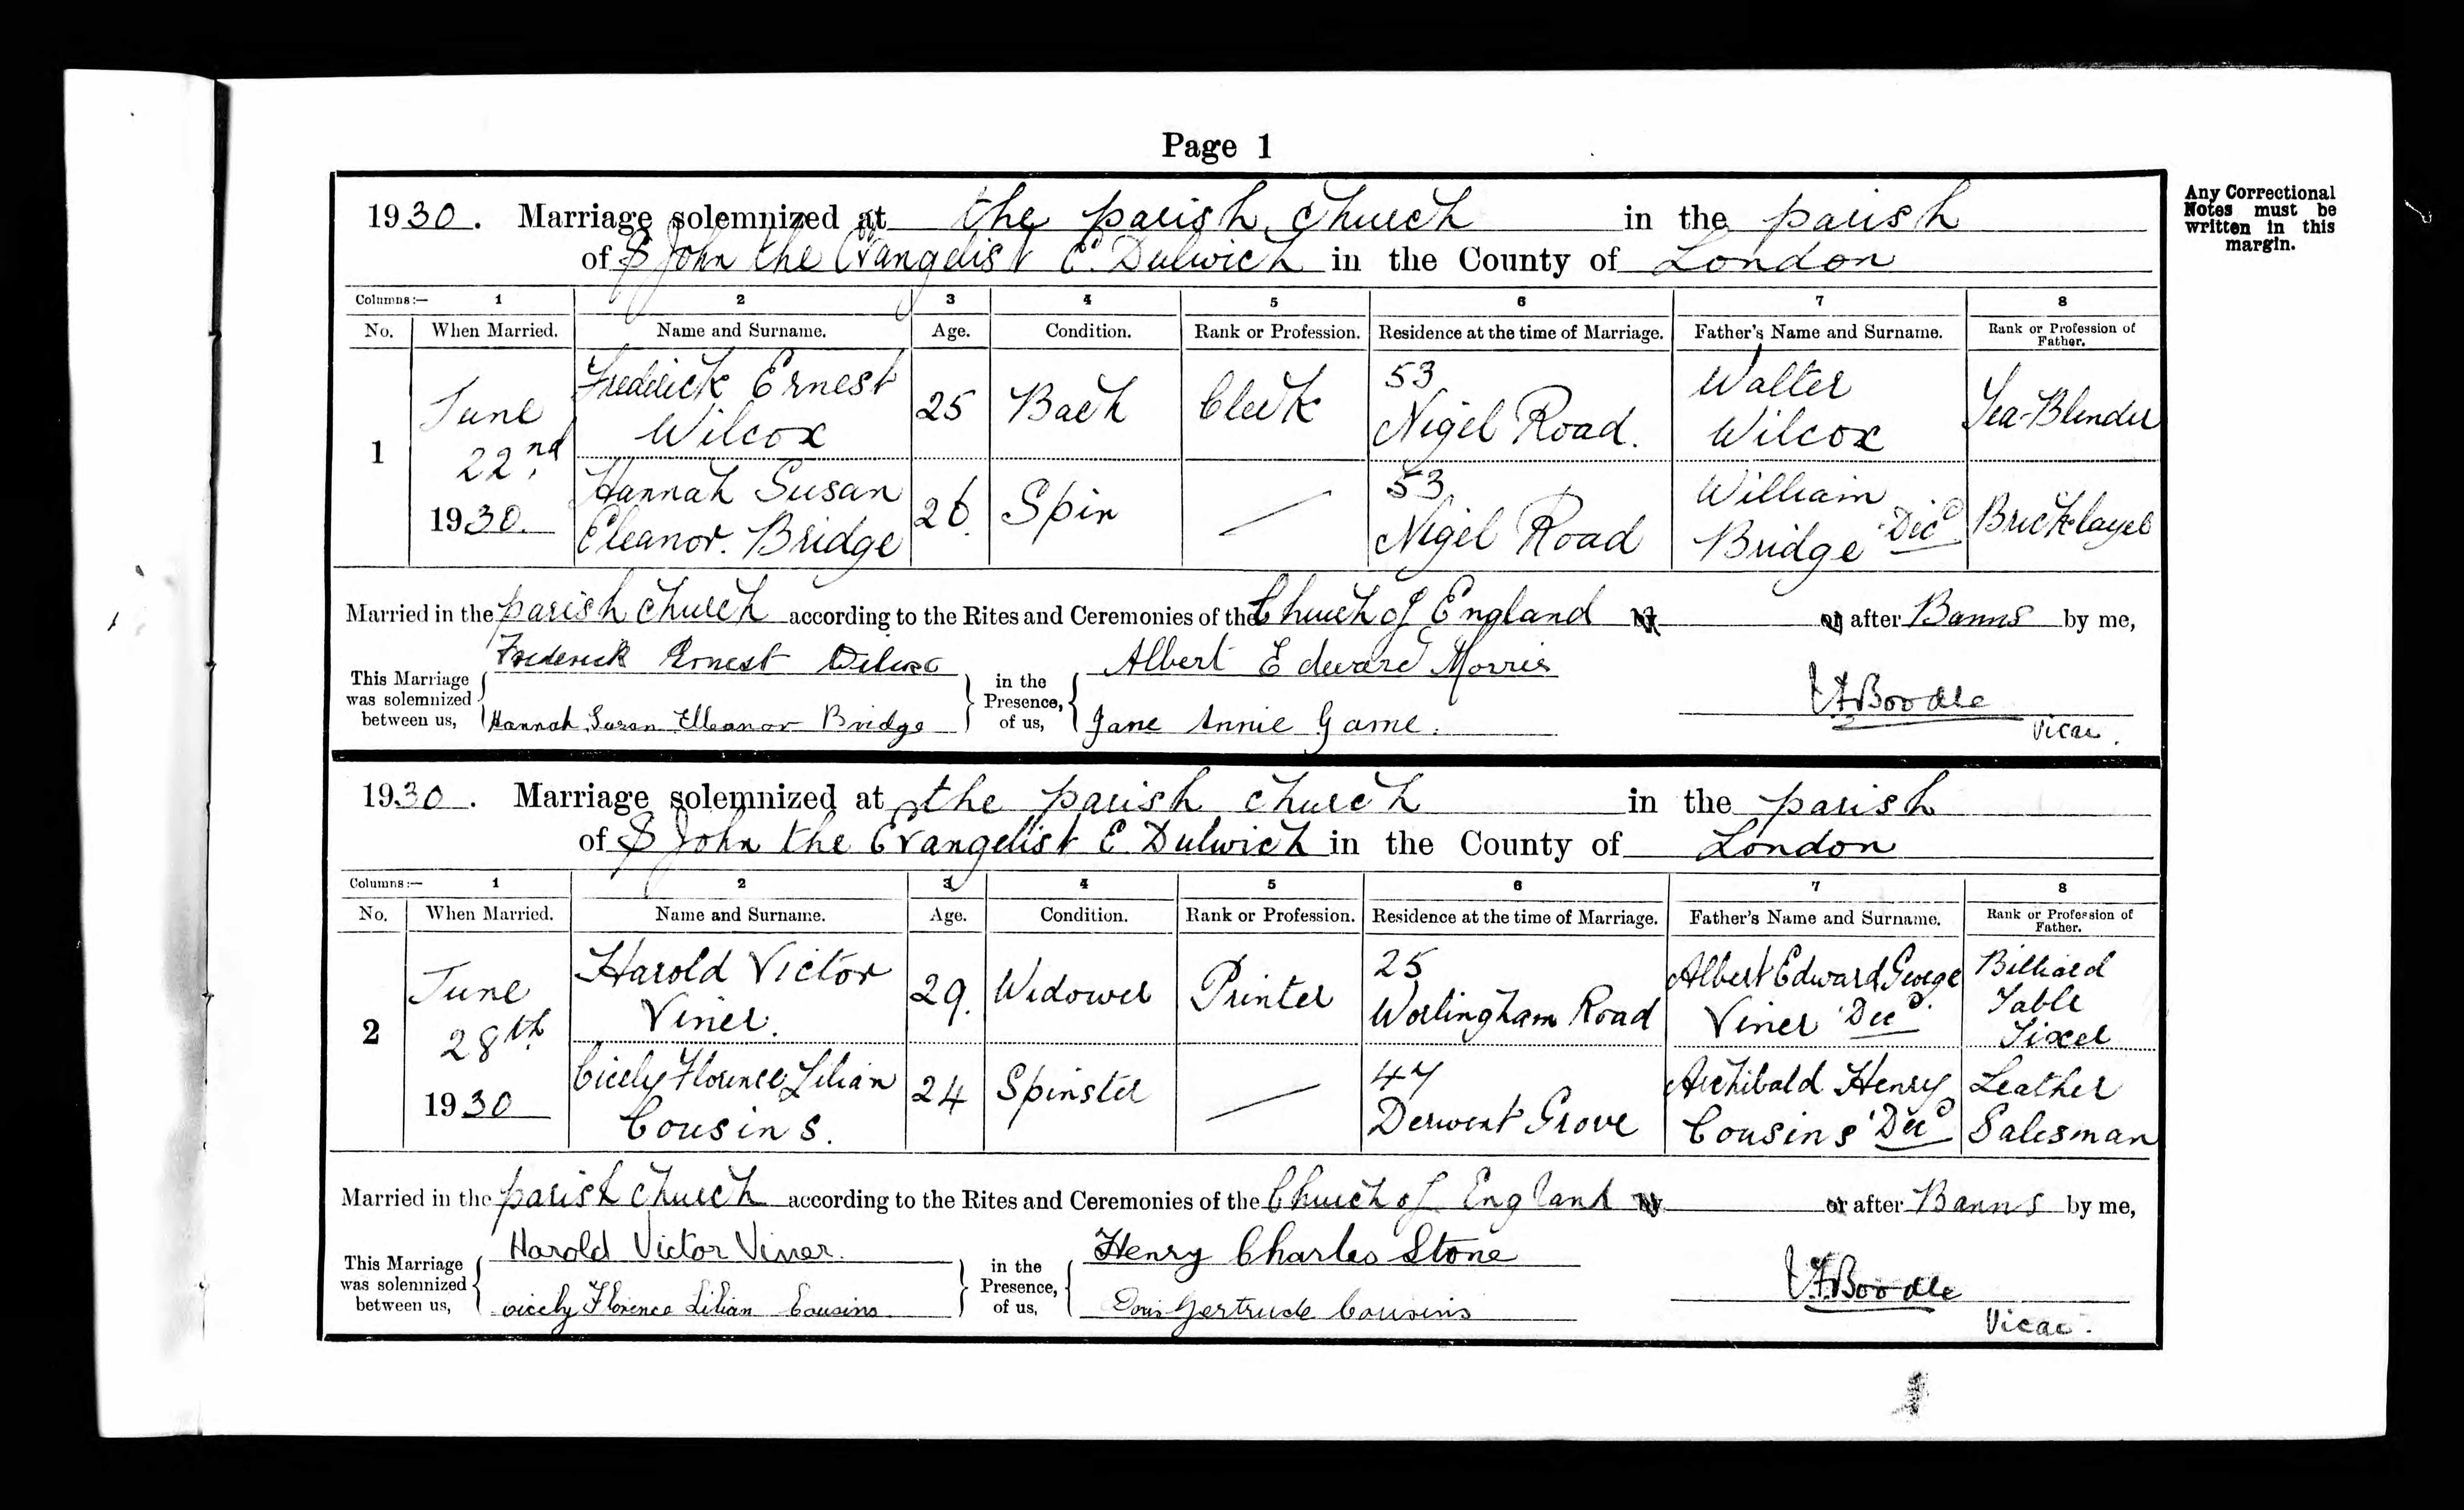 Page 1
Any Correctional
Notes must be
written in this
margin.
1930. Marriage solemnized at the parish church in the parish
of St John the Evangelist E. Dulwich in the County of London
Columns:— 1 2 3 4 5 6 7 8
No. When Married. Name and Surname. Age. Condition. Rank or Profession. Residence at the time of Marriage. Father's Name and Surname. Rank or Profession of Father.
1
June
22nd.
1930.
Frederick Ernest
Wilcox
25 Bach Clerk
53
Nigel Road.
Walter
Wilcox
Tea-Blender
Hannah Susan
Eleanor. Bridge
26. Spin —
53
Nigel Road
William
Bridge Decd
Bricklayer
Married in the parish church according to the Rites and Ceremonies of the Church of England by or after Banns by me,
This Marriage
was solemnized
between us,
Frederick Ernest Wilcox
Hannah Susan Elleanor Bridge
in the
Presence,
of us,
Albert Edward Morris
Jane Annie Game.
Boodle
Vicar.
1930. Marriage solemnized at the parish church in the parish
of St John the Evangelist E. Dulwich in the County of London
Columns:— 1 2 3 4 5 6 7 8
No. When Married. Name and Surname. Age. Condition. Rank or Profession. Residence at the time of Marriage. Father's Name and Surname. Rank or Profession of Father.
2
June
28th
1930
Harold Victor
Viner.
29. Widower Printer
25
Worlingham Road
Albert Edward George
Viner Decd
Billiard
Table
Fixer
Cicely Florence Lilian
Cousins.
24 Spinster —
47
Derwent Grove
Archibald Henry
Cousins Decd
Leather
Salesman
Married in the parish church according to the Rites and Ceremonies of the Church of England by or after Banns by me,
This Marriage
was solemnized
between us,
Harold Victor Viner.
Cicely Florence Lilian Cousins
in the
Presence,
of us,
Henry Charles Stone
Doris Gertrude Cousins
Boodle
Vicar.